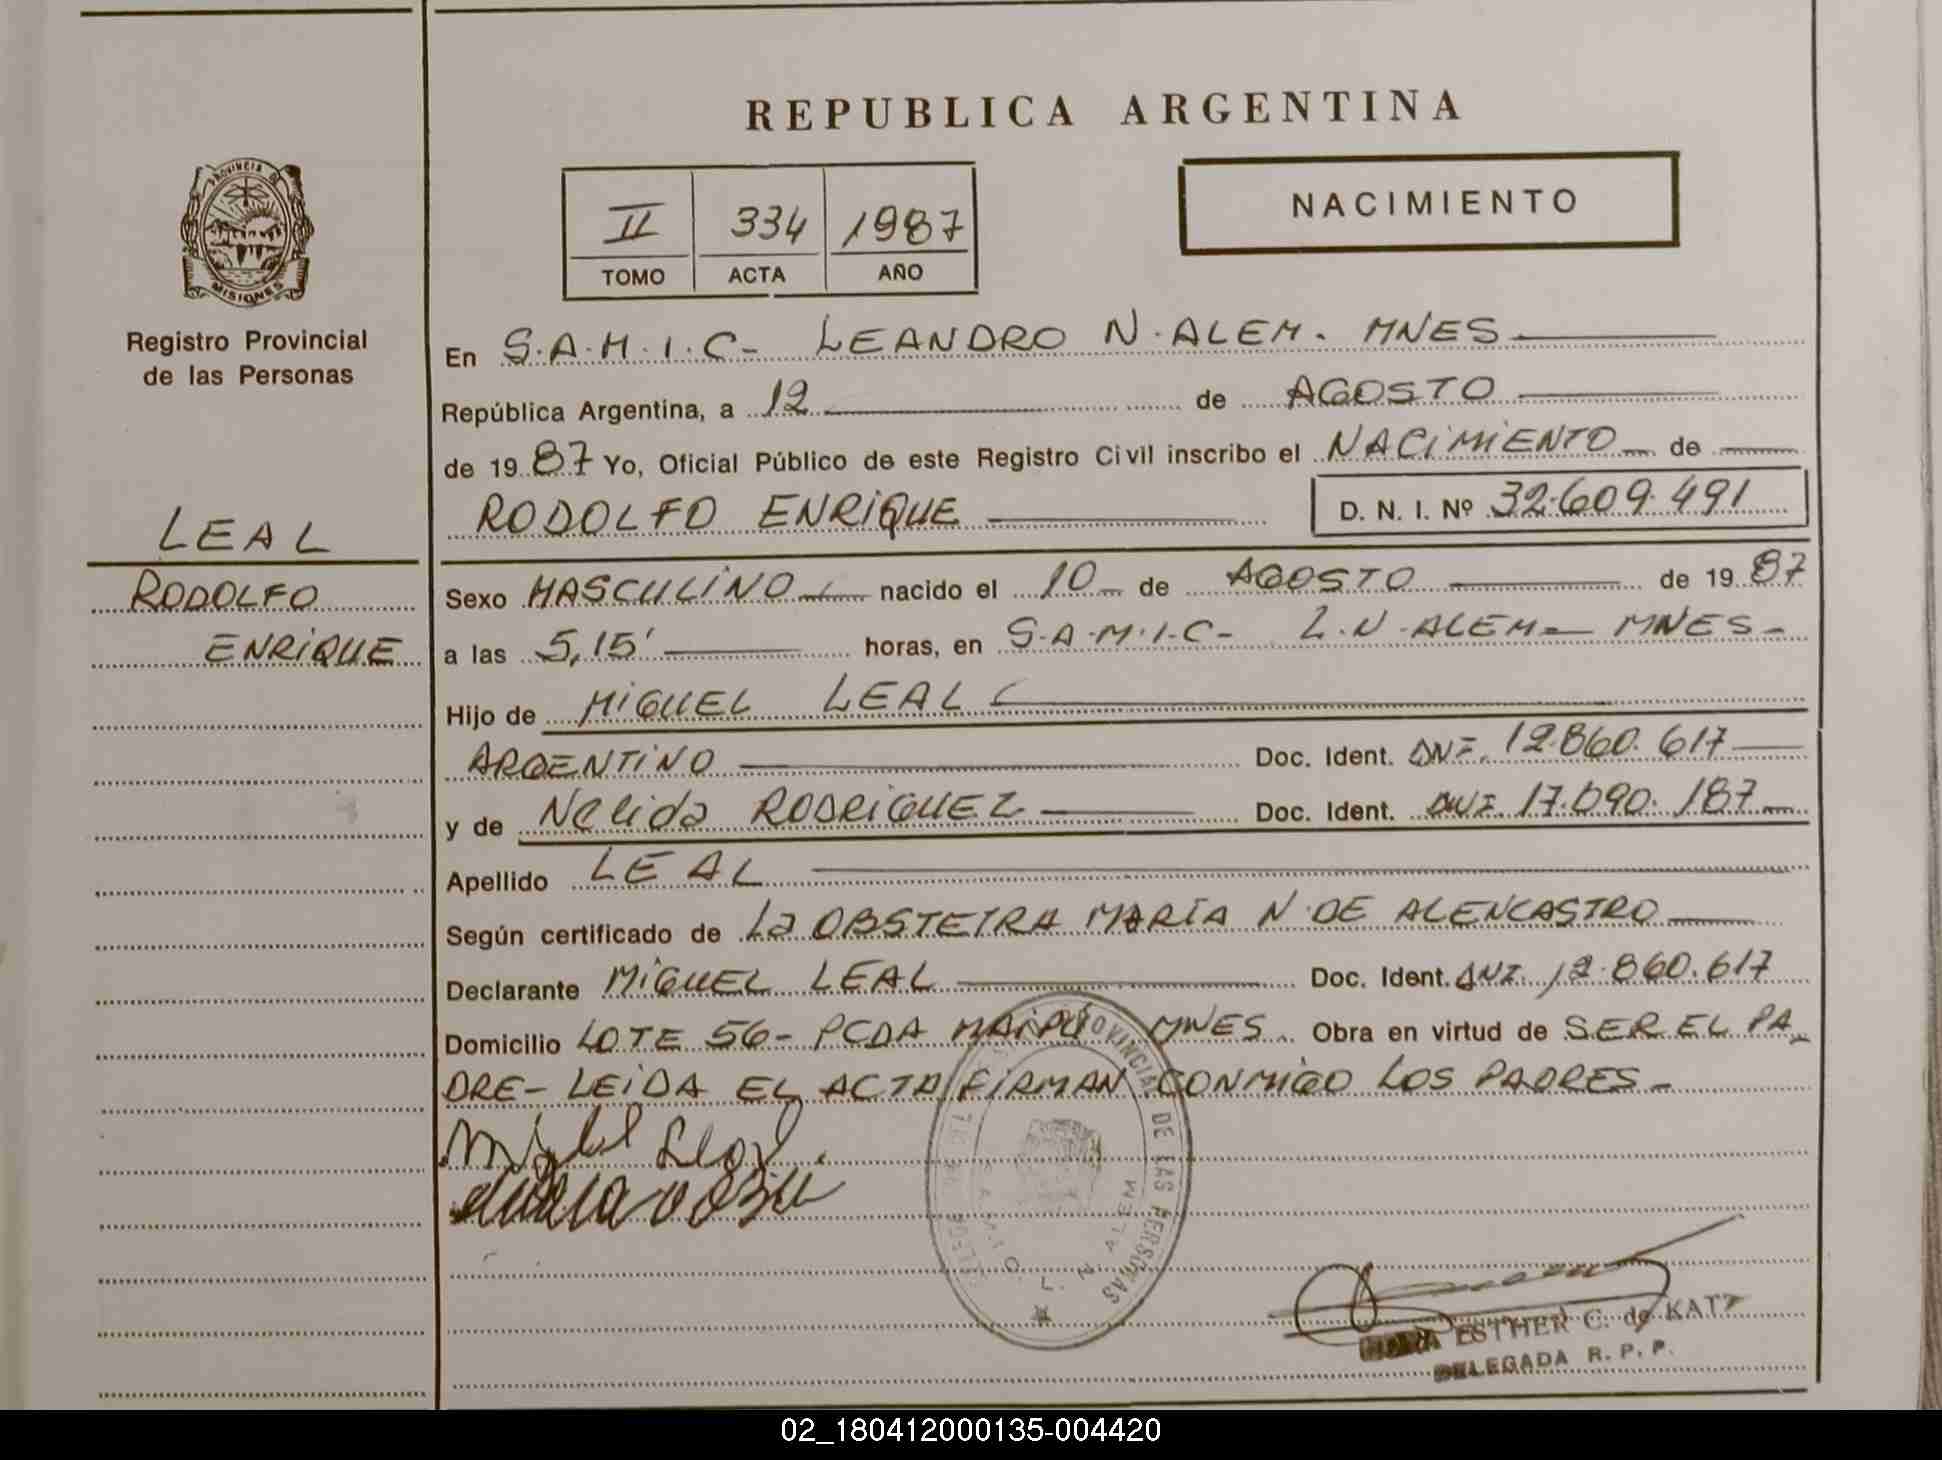 REPUBLICA ARGENTINA
PROVINCIA DE
MISIONES
Registro Provincial
de las Personas
II 334 1987
TOMO ACTA AÑO
NACIMIENTO
En S.A.M.I.C- LEANDRO N. ALEM. MNES
República Argentina, a 12 de AGOSTO
de 1987 Yo, Oficial Público de este Registro Civil inscribo el NACIMIENTO de
RODOLFO ENRIQUE D. N. I. Nº 32.609.491
LEAL
RODOLFO
ENRIQUE
Sexo MASCULINO nacido el 10 de AGOSTO de 1987
a las 5,15' horas, en S.A.M.I.C- L.N. ALEM- MNES-
Hijo de MIGUEL LEAL
ARGENTINO Doc. Ident. DNI. 12.860.617
y de Nelida RODRIGUEZ Doc. Ident. DNI. 17.090.187
Apellido LEAL
Según certificado de La OBSTETRA MARÍA N. DE ALENCASTRO
Declarante MIGUEL LEAL Doc. Ident. DNI. 12.860.617
Domicilio LOTE 56- PCDA MAIPÚ MNES. Obra en virtud de SER EL PA
DRE- LEIDA EL ACTA FIRMAN CONMIGO LOS PADRES-
Miguel Leal.
PROVINCIAL DE LAS PERSONAS
S.A.M.I.C. L. N. ALEM
ESTHER C. de KATZ
DELEGADA R. P. P.
02_180412000135-004420